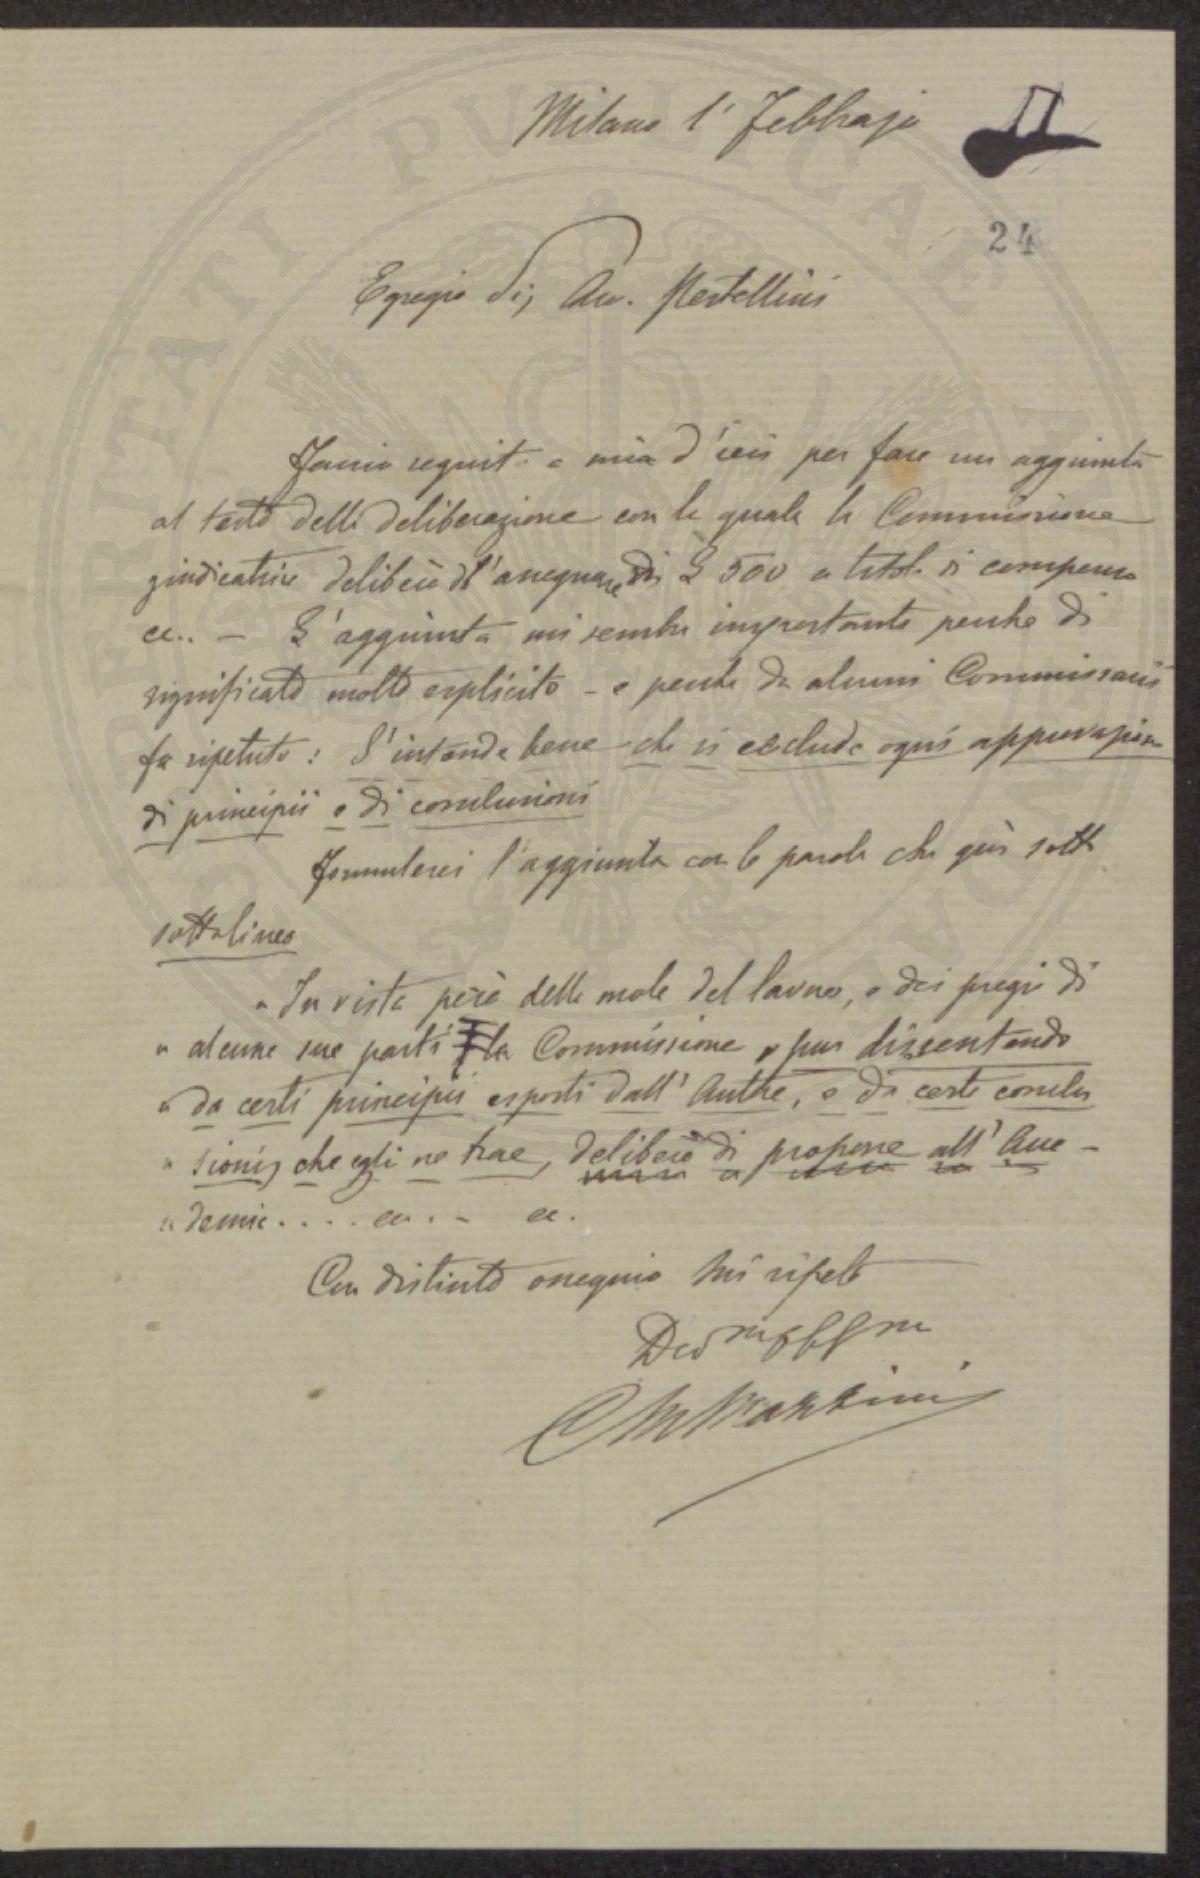 Milano 1° Febbrajo
24
Egregio Sig. Avv.
Faccio seguito a mia d'ieri per fare un aggiunta
al testo della deliberazione con la quale la Commissione
giudicatrice deliberò d'assegnare L 500 a titolo di compenso
ec.. – L'aggiunta mi sembra importante perchè di
significato molto esplicito – e perchè da alcuni Commissarii
fu ripetuto: S'intende bene che si esclude ogni approvazione
di principii e di conclusioni
Formulerei l'aggiunta con le parole che quì sotto
sottolineo
"In vista però della mole del lavoro, e dei pregi di
" alcune sue parti la Commissione, pur dissentendo
" da certi principii esposti dall'Autore, e da certe conclu
" sioni, che egli ne trae, deliberò di proporre all'Acca-
" demia . . . . ec. . – ec.
Con distinto ossequio mi ripeto